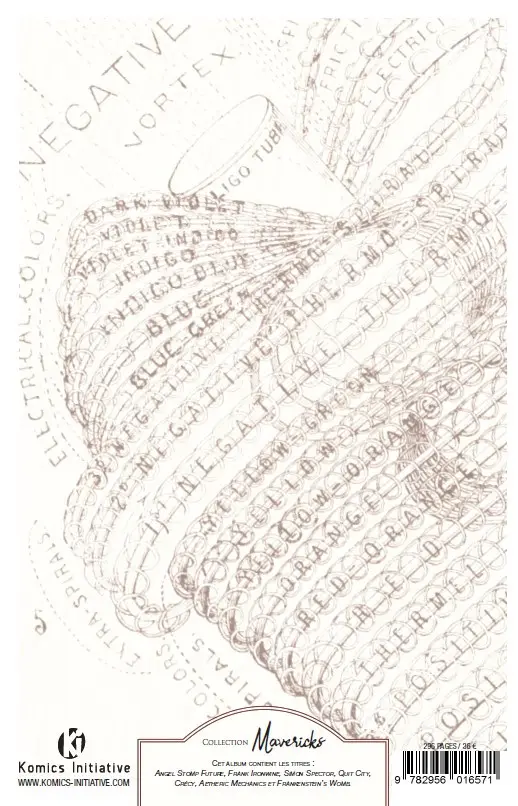 NEGATIVE
VORTEX
FRICTI
ELECTRICI
INDIGO TUBE
ELECTRICAL COLORS.
DARK VIOLET
VIOLET
VIOLET-INDIGO
INDIGO
INDIGO BLUE
BLUE
BLUE-GREEN
THERMO-SPIRAL
3° NEGATIVE THERMO-SPIRAL
2° NEGATIVE THERMO-SPIRAL
1° NEGATIVE THERMO-
YELLOW GREEN
YELLOW
YELLOW-ORANGE
ORANGE
RED-ORANGE
RED
THERMEL
POSITIV
POSI
EXTRA-SPIRALS
COLORS
SPIRALS
Ki
Komics Initiative
WWW.KOMICS-INITIATIVE.COM
COLLECTION Mavericks
CET ALBUM CONTIENT LES TITRES :
ANGEL STOMP FUTURE, FRANK IRONWINE, SIMON SPECTOR, QUIT CITY,
CRÉCY, AETHERIC MECHANICS ET FRANKENSTEIN'S WOMB.
296 PAGES / 26 €
9 782956 016571